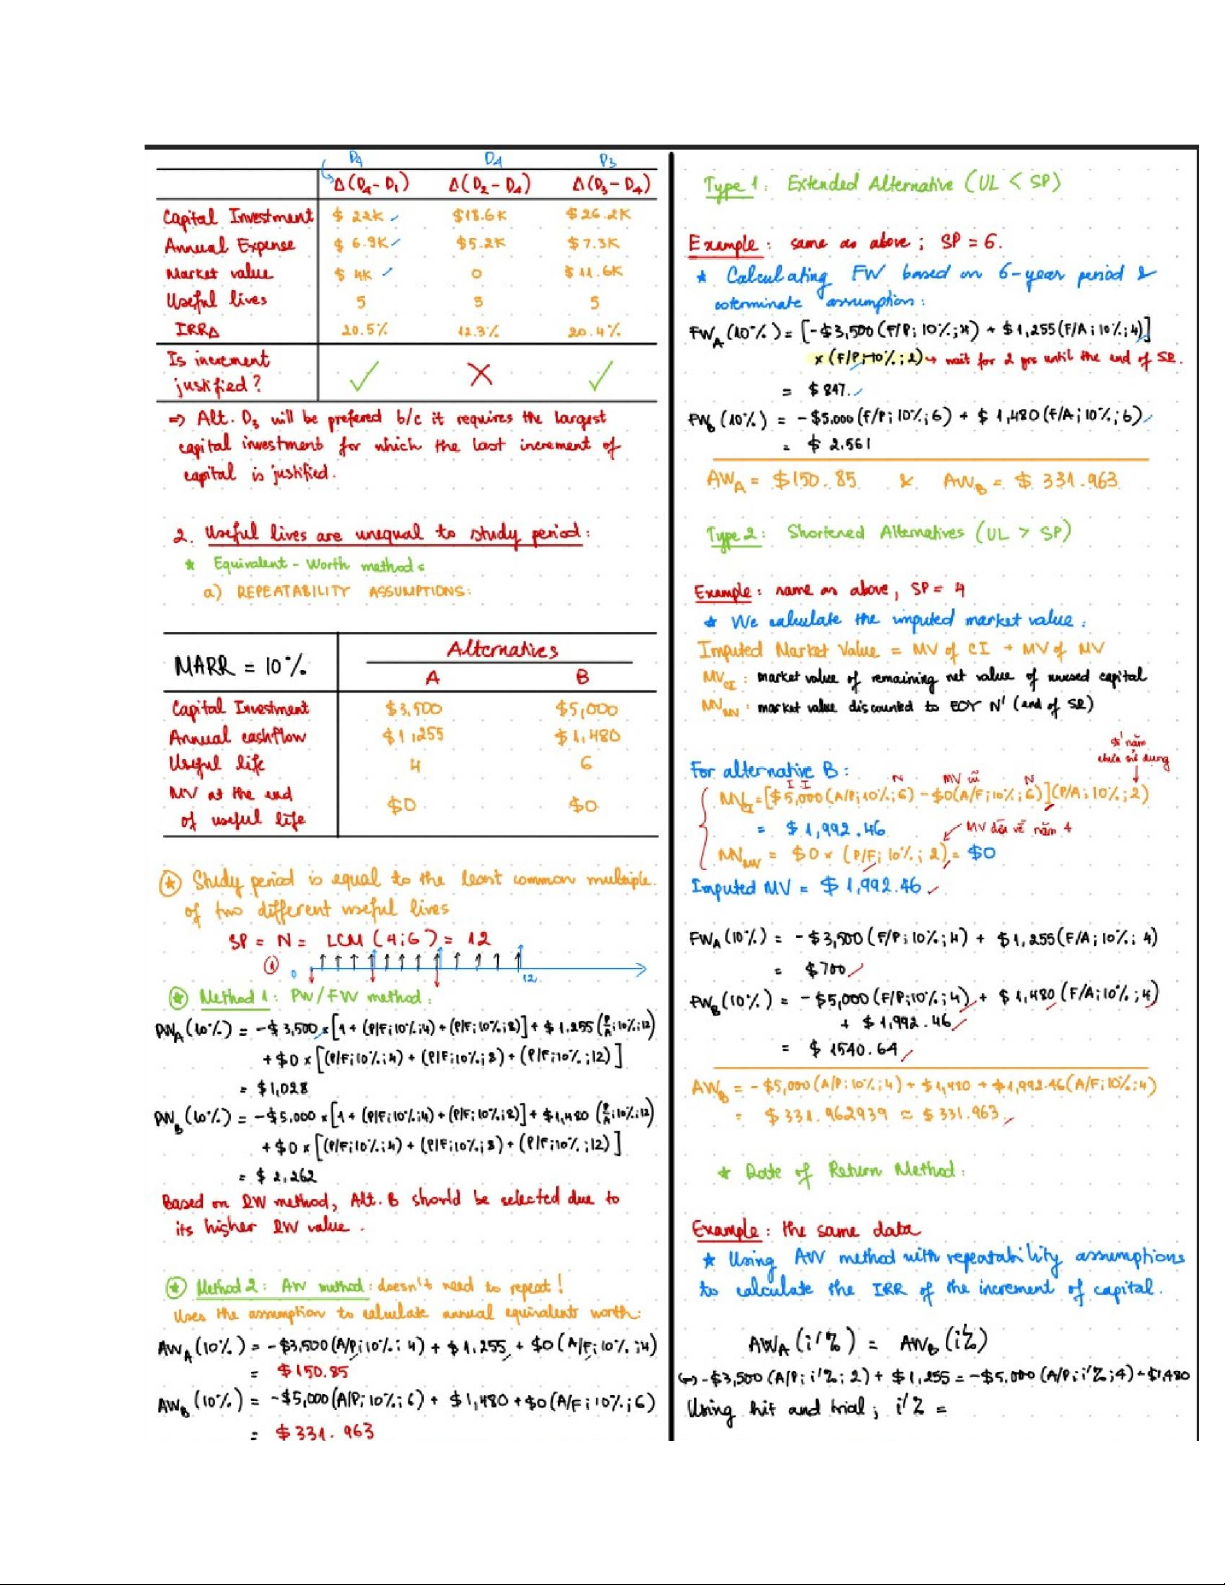 D4 D4 D3
Δ(D4 - D1) Δ(D2 - D4) Δ(D3 - D4)
Capital Investment $ 22K $18.6K $26.2K
Annual Expense $ 6.9K $5.2K $7.3K
Market value $ 4K 0 $ 11.6K
Useful lives 5 5 5
IRRΔ 20.5% 12.3% 20.4%
Is increment
justified? ✓ ✗ ✓
=> Alt. D3 will be prefered b/c it requires the largest
capital investment for which the last increment of
capital is justified.
2. Useful lives are unequal to study period:
* Equivalent - Worth methods
a) REPEATABILITY ASSUMPTIONS:
MARR = 10% Alternatives
A B
Capital Investment $3,500 $5,000
Annual cashflow $1,255 $1,480
Useful life 4 6
MV at the end
of useful life $0 $0
* Study period is equal to the least common multiple
of two different useful lives
SP = N = LCM (4;6) = 12
0 12
* Method 1: PW/FW method:
PWA(10%) = -$3,500 x [1 + (P/F;10%;4) + (P/F;10%;8)] + $1,255 (P/A;10%;12)
+ $0 x [(P/F;10%;4) + (P/F;10%;8) + (P/F;10%;12)]
= $1,028
PWB(10%) = -$5,000 x [1 + (P/F;10%;4) + (P/F;10%;8)] + $1,480 (P/A;10%;12)
+ $0 x [(P/F;10%;4) + (P/F;10%;8) + (P/F;10%;12)]
= $ 2,262
Based on PW method, Alt. B should be selected due to
its higher PW value.
* Method 2: AW method: doesn't need to repeat!
Uses the assumption to calculate annual equivalents worth:
AWA(10%) = -$3,500(A/P;10%;4) + $1,255 + $0(A/F;10%;4)
= $150.85
AWB(10%) = -$5,000(A/P;10%;6) + $1,480 + $0(A/F;10%;6)
= $331.963
Type 1: Extended Alternative (UL < SP)
Example: same as above; SP = 6.
* Calculating FW based on 6-year period &
coterminate assumption:
FWA(10%) = [-$3,500(F/P;10%;4) + $1,255(F/A;10%;4)]
x (F/P;10%;2) → wait for 2 yrs until the end of SP.
= $847.
FWB(10%) = -$5,000(F/P;10%;6) + $1,480(F/A;10%;6)
= $ 2.561
AWA = $150.85 & AWB = $ 331.963
Type 2: Shortened Alternatives (UL > SP)
Example: same as above, SP = 4
* We calculate the imputed market value:
Imputed Market Value = MV of CI + MV of MV
MVCI: market value of remaining net value of unused capital
MVMV: market value discounted to EOY N' (end of SP)
số năm
chưa sử dụng
For alternative B: I I N MV N
MVCI = [$5,000(A/P;10%;6) - $0(A/F;10%;6)](P/A;10%;2)
= $1,992.46 MV dời về năm 4
MVMV = $0 x (P/F;10%;2) = $0
Imputed MV = $1,992.46
FWA(10%) = -$3,500(F/P;10%;4) + $1,255(F/A;10%;4)
= $700
FWB(10%) = -$5,000(F/P;10%;4) + $1,480(F/A;10%;4)
+ $1,992.46
= $ 1540.64
AWB = -$5,000(A/P;10%;4) + $1,480 + $1,992.46(A/F;10%;4)
= $331.962939 ≈ $331.963
* Rate of Return Method:
Example: the same data
* Using AW method with repeatability assumptions
to calculate the IRR of the increment of capital.
AWA(i'%) = AWB(i%)
(=) -$3,500(A/P;i'%;2) + $1,255 = -$5,000(A/P;i'%;4) + $1,480
Using hit and trial; i'% =